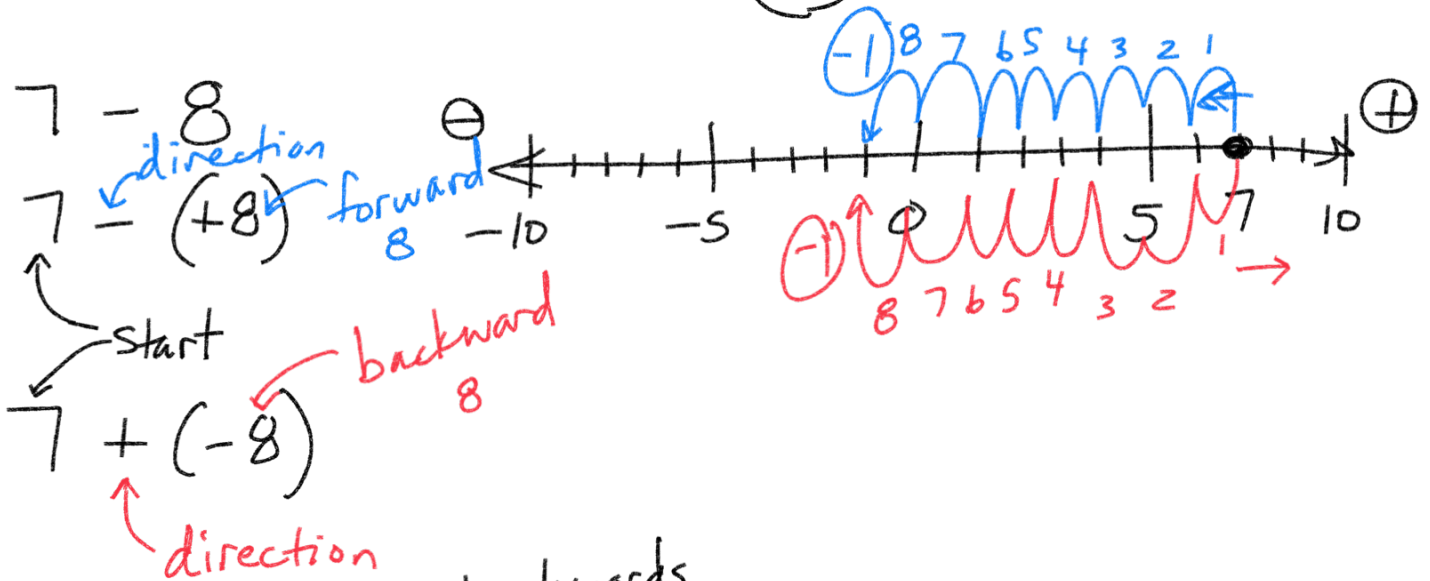 7 - 8
direction
7 - (+8) forward
8
start
backward
8
7 + (-8)
direction
-1 8 7 6 5 4 3 2 1
⊖ ⊕
-10 -5 0 5 7 10
-1 8 7 6 5 4 3 2 1